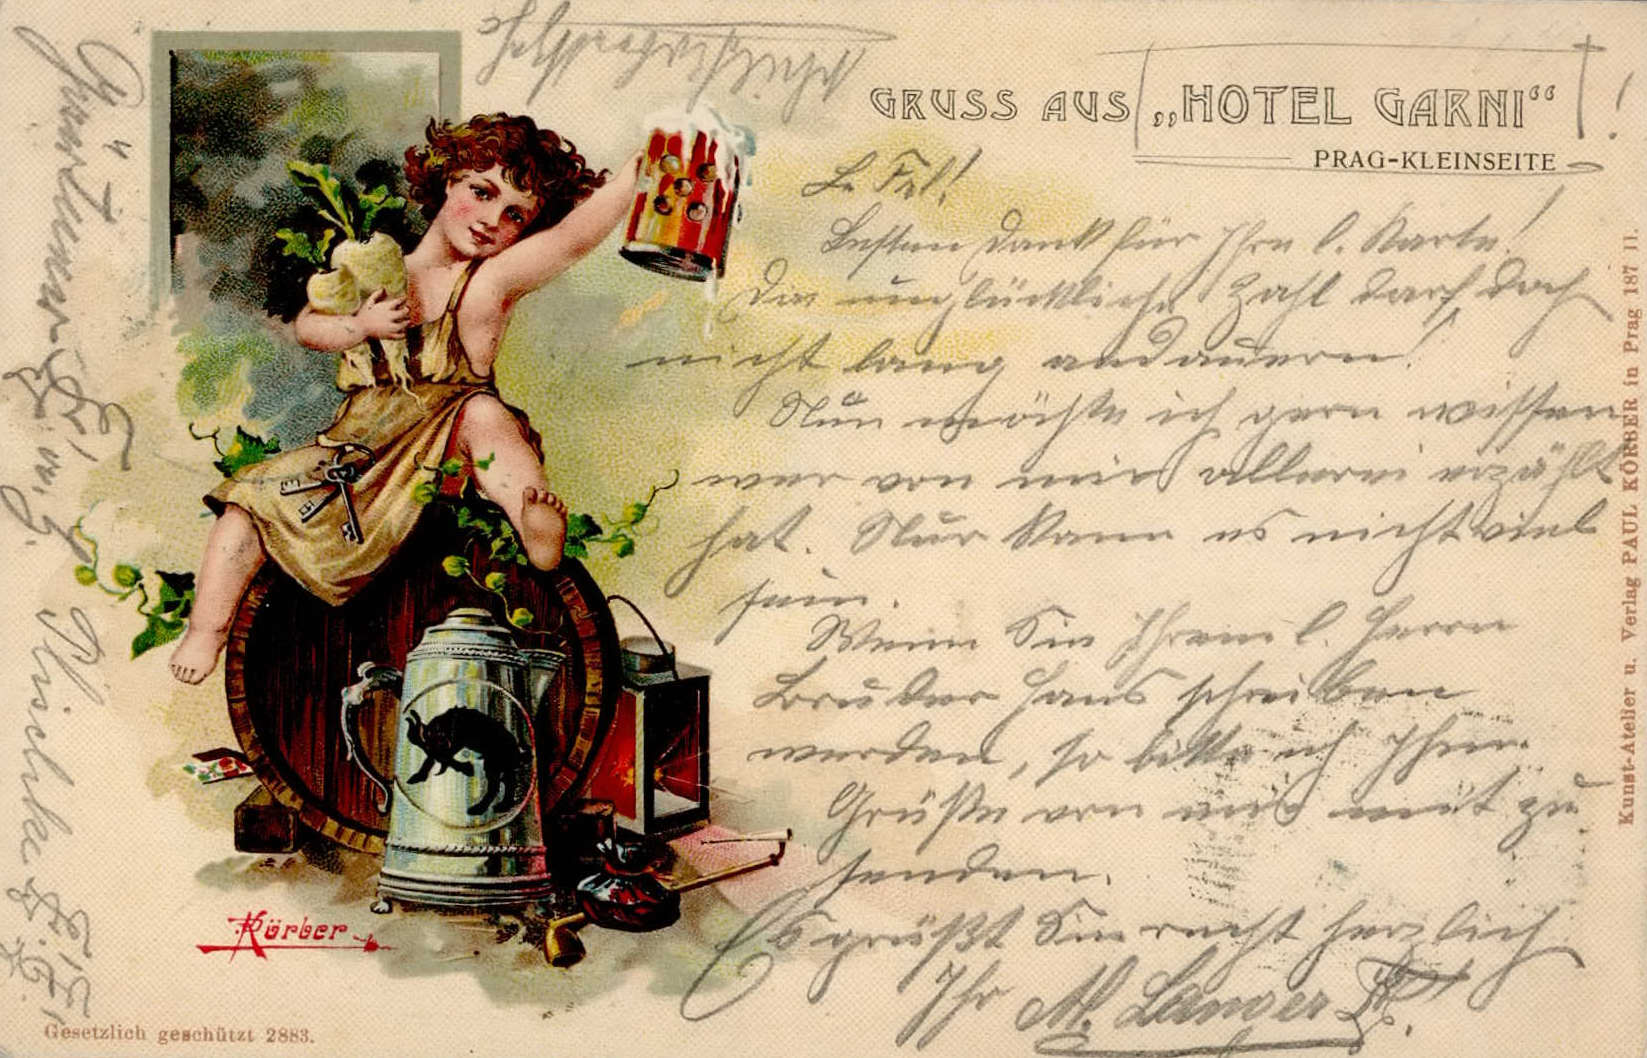 GRUSS AUS „HOTEL GARNI“
PRAG-KLEINSEITE
L. Frl!
Besten Dank für Ihre l. Karte!
Die unglückliche Zahl darf doch
nicht lang andauern!
Nun möchte ich gern wissen
wer von mir allerei erzählt
hat. Nur kann es nicht viel
sein.
Wenn Sie Ihrem l. Herrn
Bruder Hans schreiben
werden, so bitte ich Ihm
Grüße von mir mit zu
senden.
Es grüßt Sie recht herzlich
Ihr M. Langer
Körber
Gesetzlich geschützt 2883.
Kunst-Atelier u. Verlag PAUL KÖRBER in Prag 187 II.